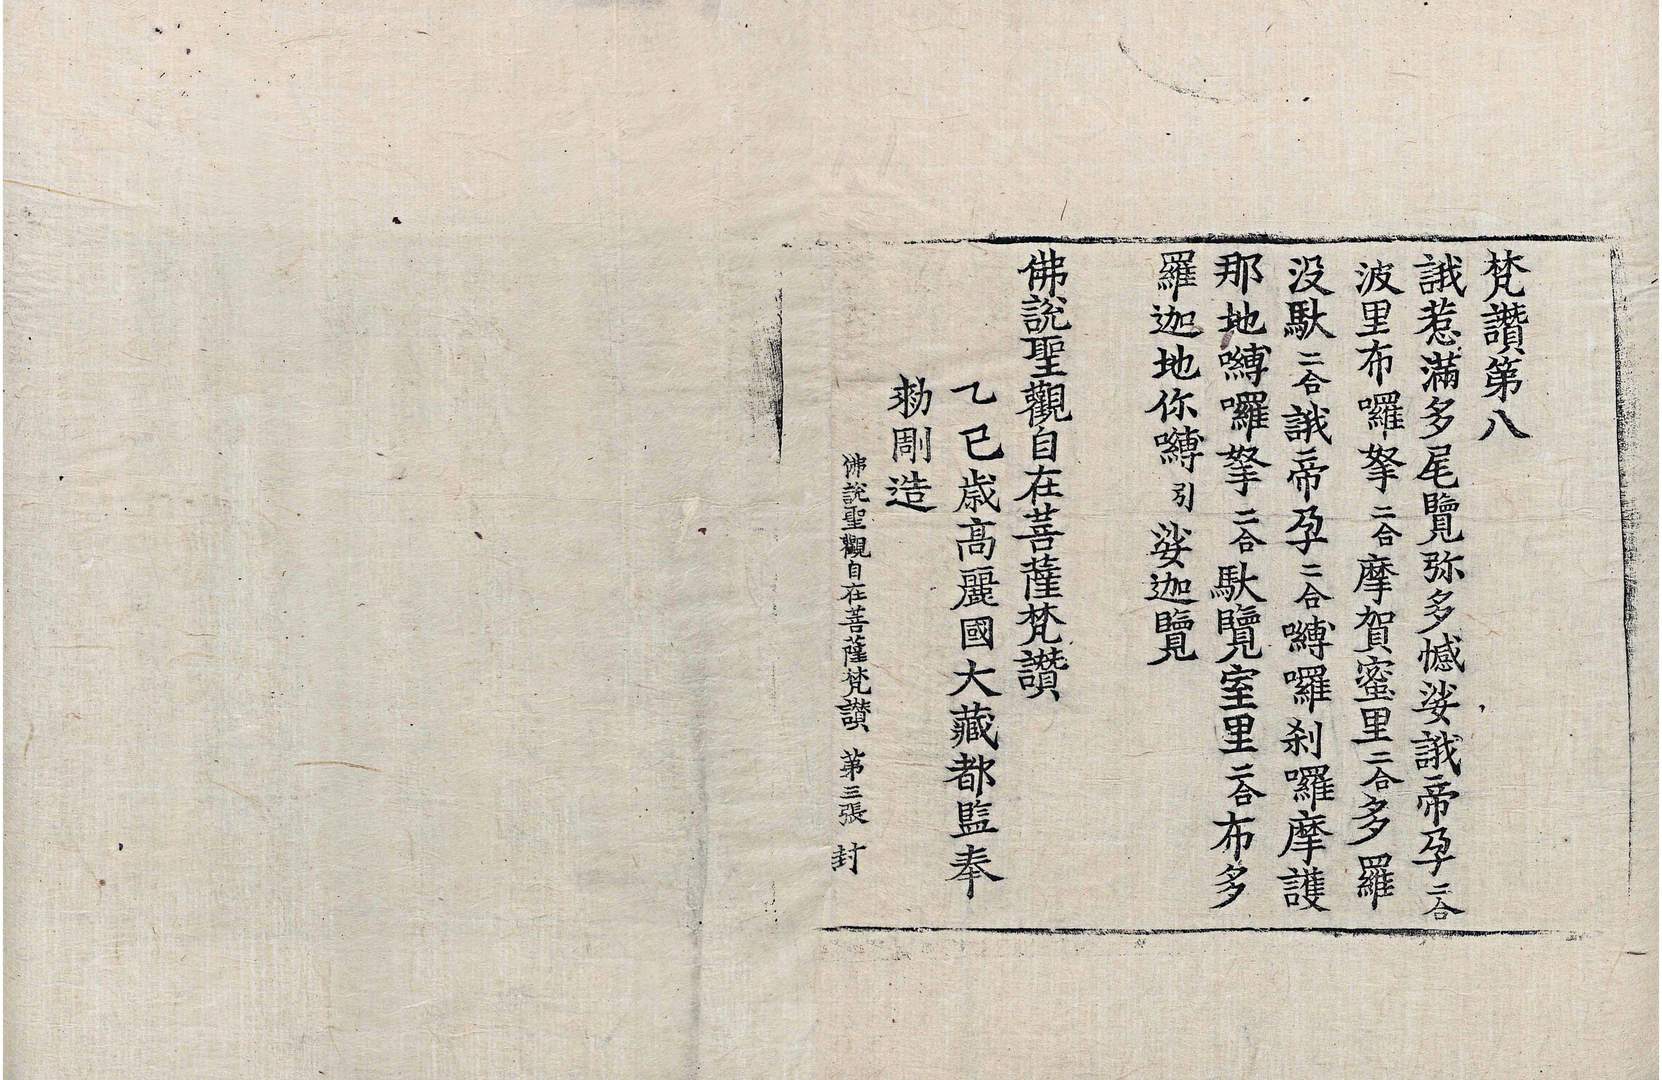 梵讚第八
誐惹滿多尾覽弥多憾娑誐帝孕二合
波里布囉拏二合摩賀蜜里二合多羅
没馱二合誐帝孕二合嚩囉刹囉摩護
那地嚩囉拏二合馱覽室里二合布多
羅迦地你嚩引娑迦覽
佛說聖觀自在菩薩梵讚
乙巳歲高麗國大藏都監奉
勑彫造
佛說聖觀自在菩薩梵讚 第三張 封